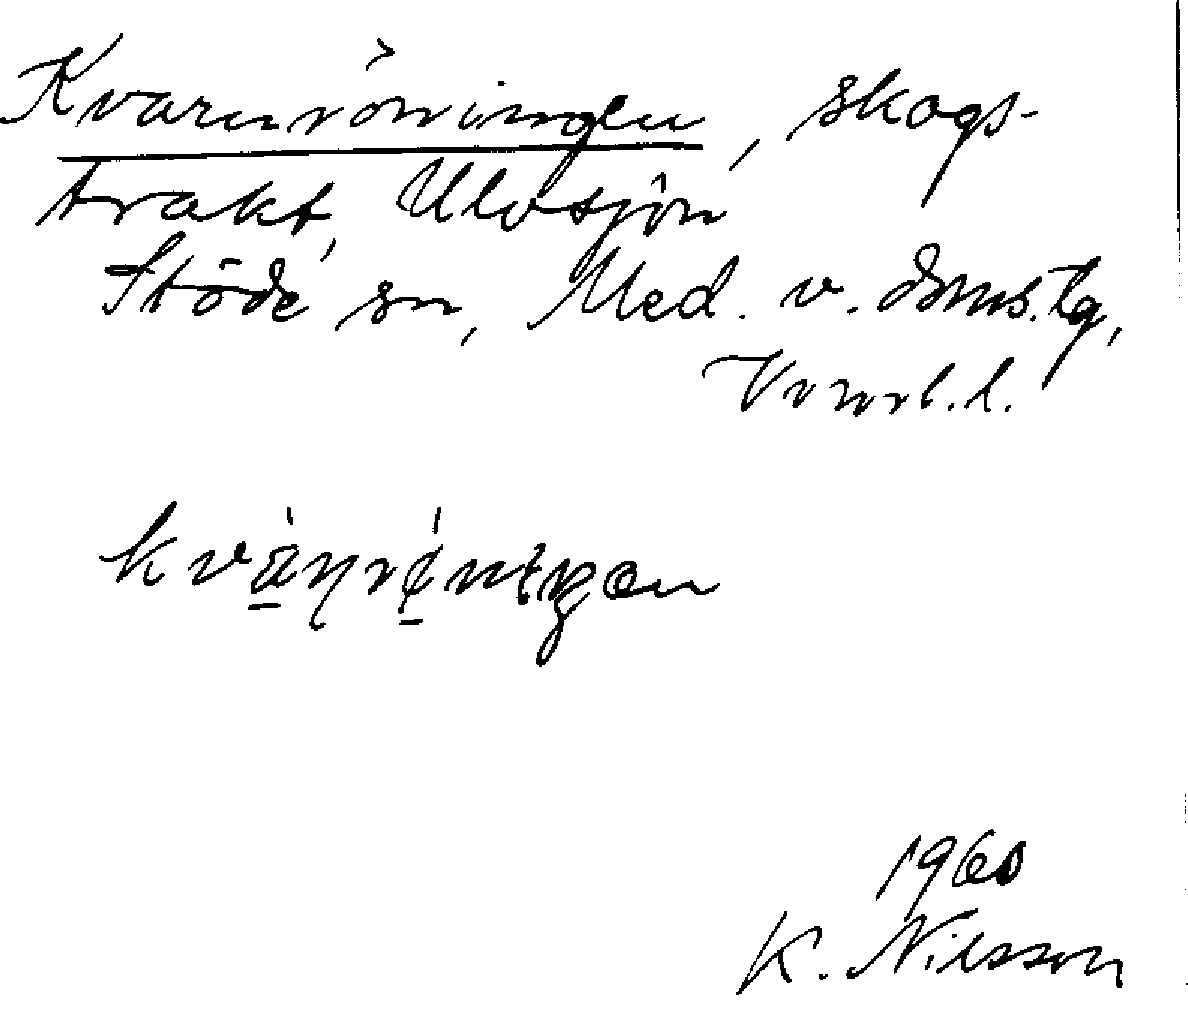 Kvarnröningen, skogs-
trakt, Ulvsjön
Stöde sn, Med. v. doms.tg,
Vvnrl.l.
1960
K. Nilsson